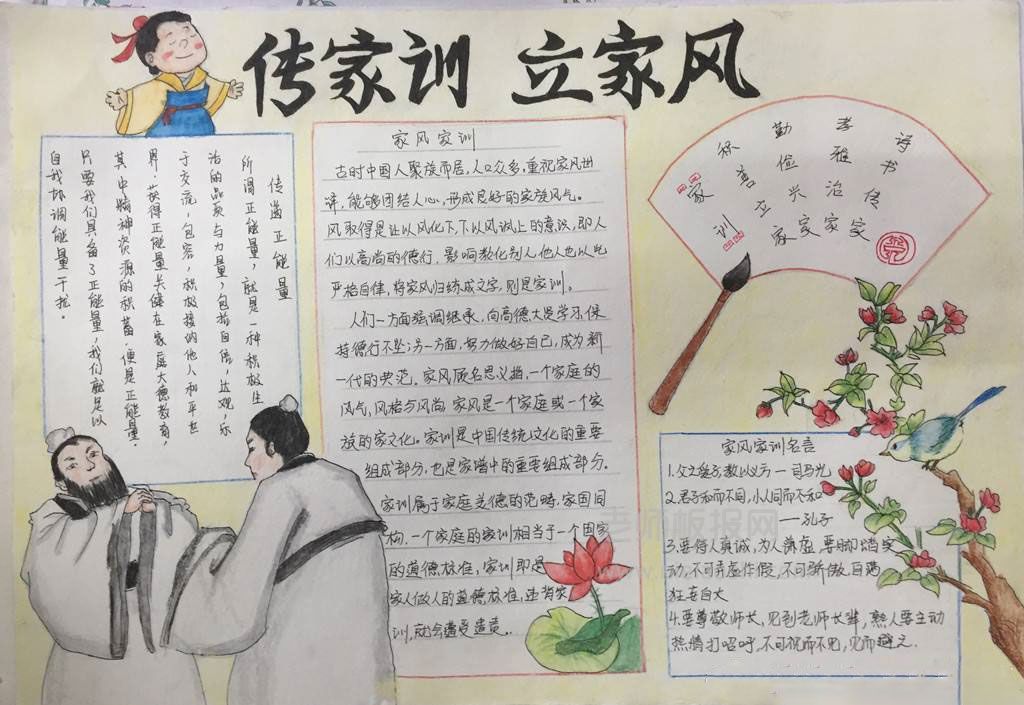 传家训 立家风
传递正能量
所谓正能量，就是一种积极生
活的品质与力量，包括自信，达观，乐
于交流，包容，积极接纳他人和平世
界。获得正能量关键在家庭大德教育，
其中精神资源的积蓄，便是正能量。
只要我们具备了正能量，我们就足以
自我协调能量干扰。
家风家训
古时中国人聚族而居，人口众多，重视家风世
泽，能够团结人心，形成良好的家族风气。
风取得是让以风化下，下以风讽上的意识，即人
们以高尚的德行，影响教化别人，他人也以此
严格自律，将家风归结成文字，则是家训。
人们一方面强调继承，向高德大贤学习，保
持德行不坠；另一方面，努力做好自己，成为新
一代的典范。家风顾名思义指，一个家庭的
风气，风格与风尚。家风是一个家庭或一个家
族的家文化。家训是中国传统文化的重要
组成部分，也是家谱中的重要组成部分。
家训属于家庭美德的范畴，家国同
构，一个家庭的家训相当于一个国家
的道德标准，家训即是
家人做人的道德标准，违背家
训，就会遭受谴责。
家训
积善
勤俭立家
孝雅兴家
治家
诗书传家
家风家训名言
1.父之爱子，教以义方——司马光
2.君子和而不同，小人同而不和
——孔子
3.要待人真诚，为人谦虚，要脚踏实
动，不可弄虚作假，不可骄傲自满
狂妄自大
4.要尊敬师长，见到老师长辈，熟人要主动
热情打招呼，不可视而不见，见而避之.
老师板报网